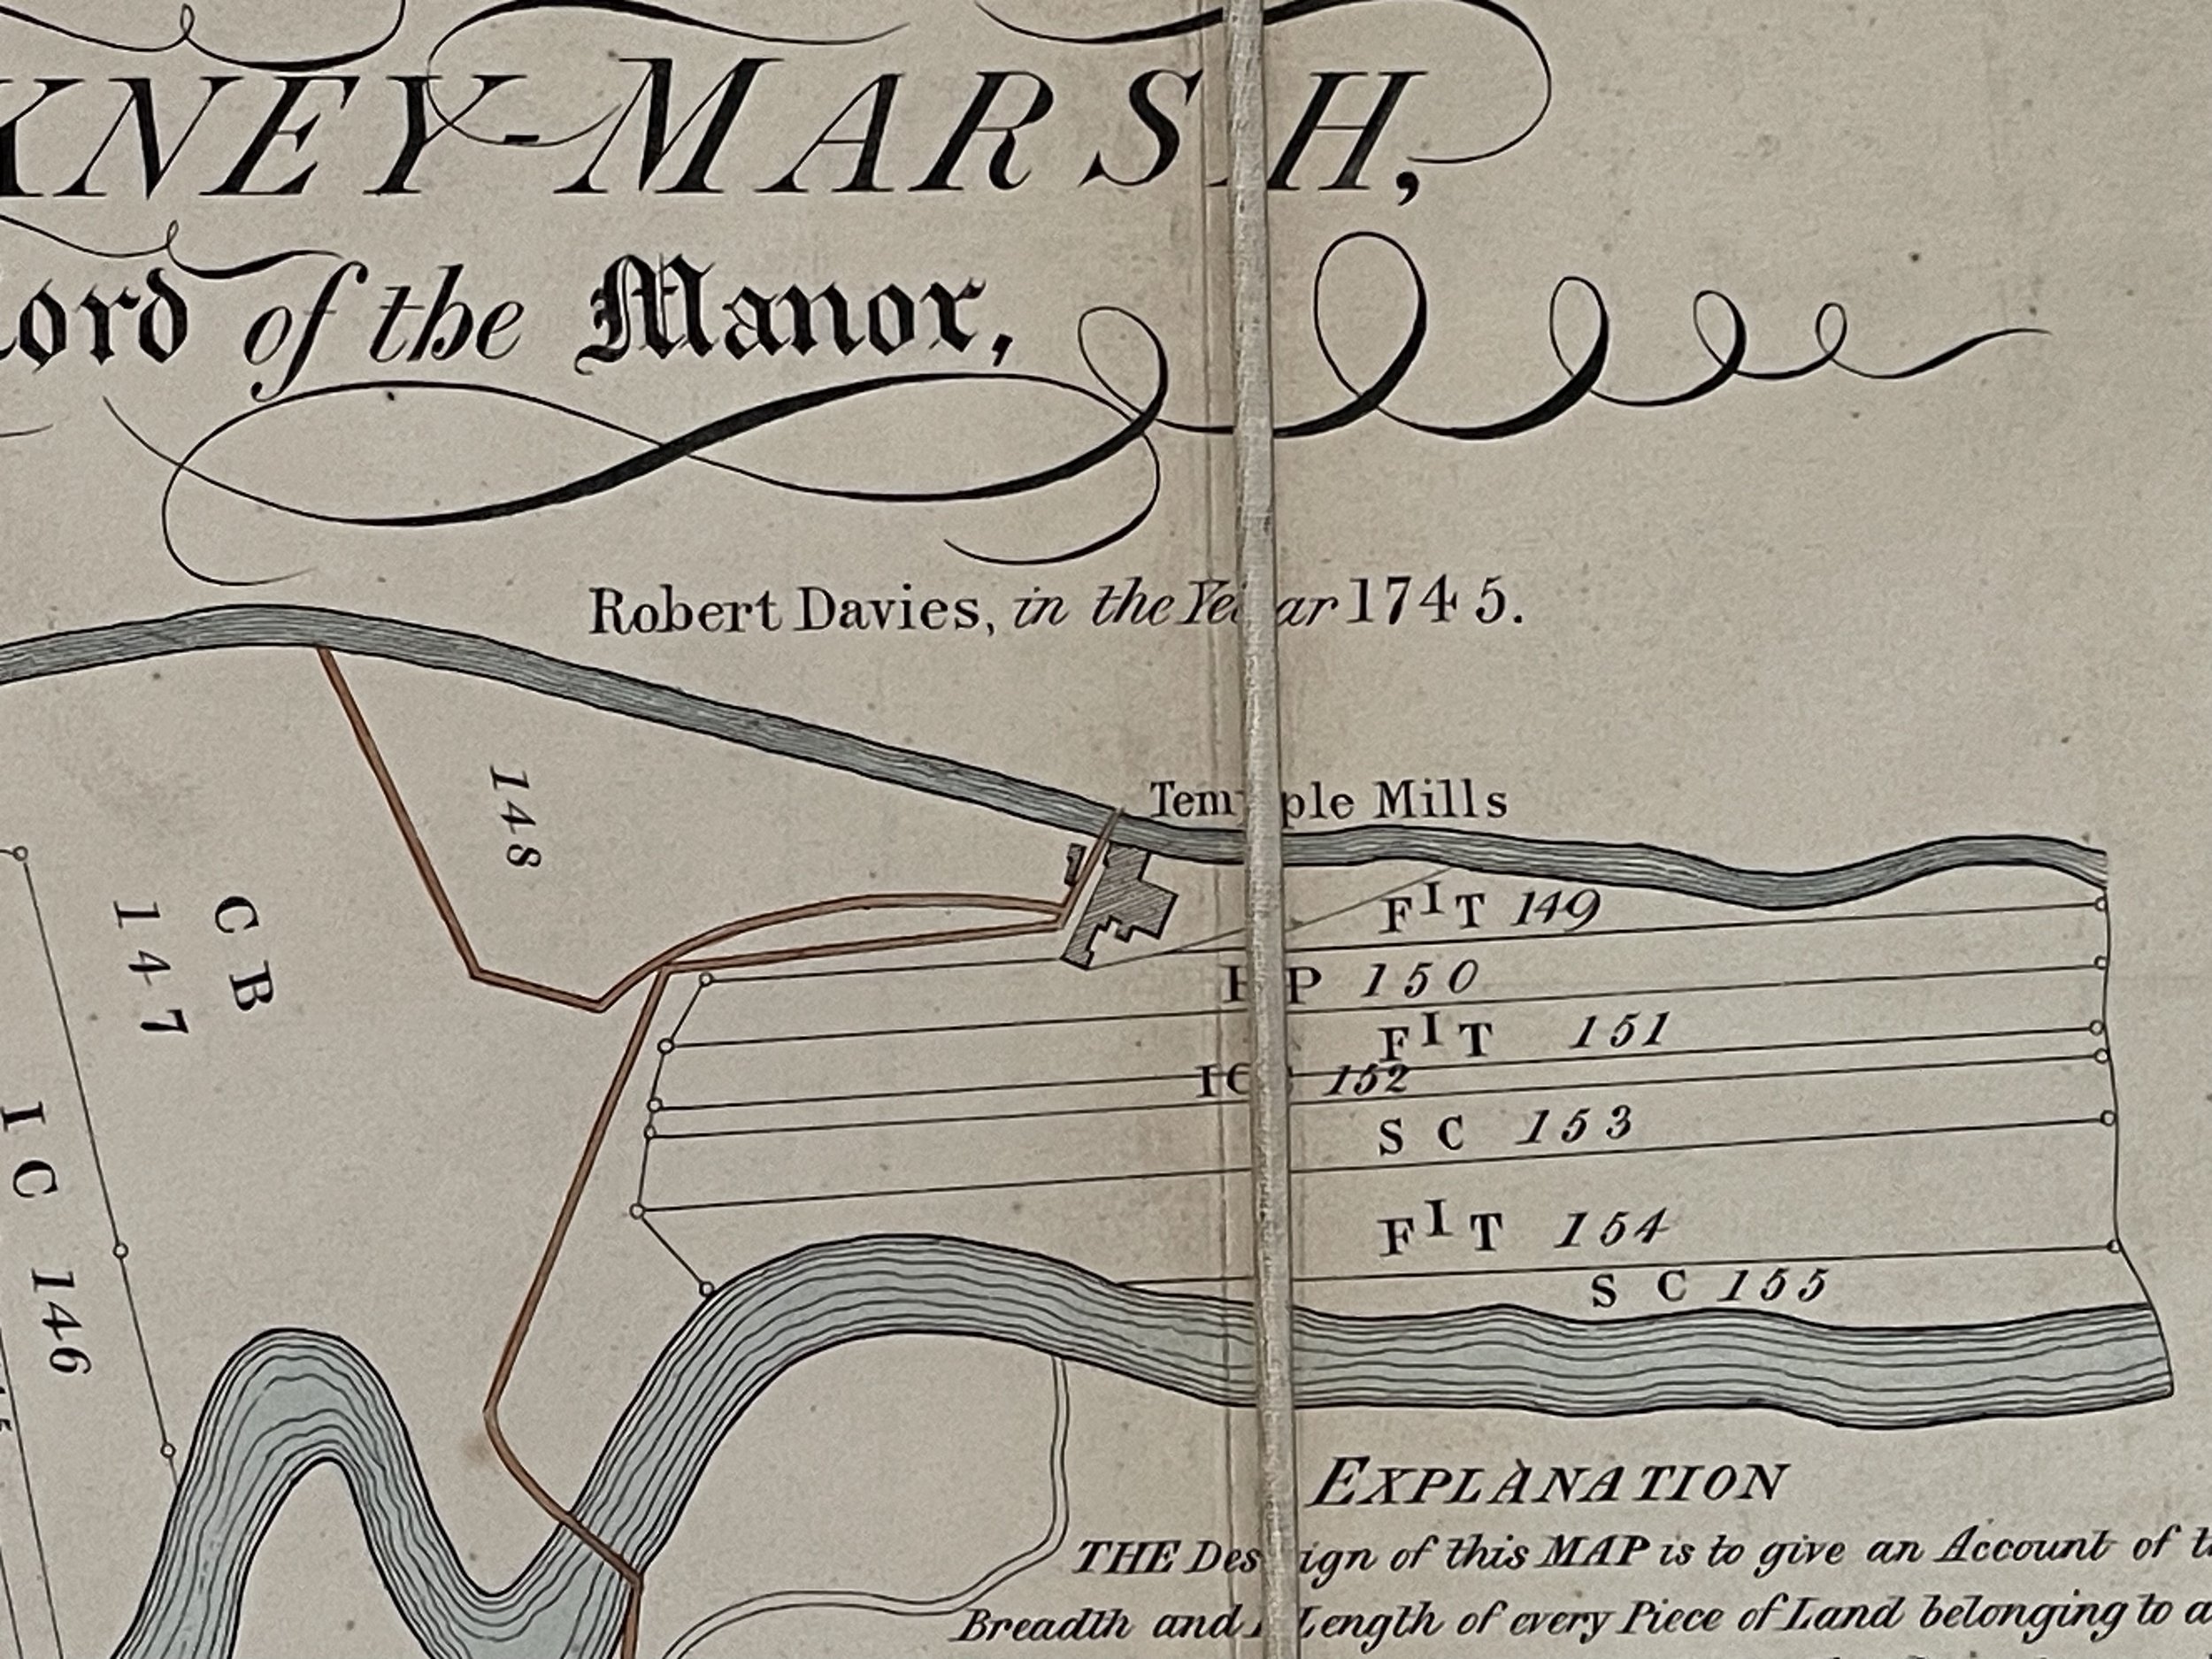 KNEY-MARSH,
Lord of the Manor,
Robert Davies, in the Year 1745.
Temple Mills
148
C B
147
I C 146
F I T 149
P 150
F I T 151
152
S C 153
F I T 154
S C 155
EXPLANATION
THE Design of this MAP is to give an Account of
Breadth and Length of every Piece of Land belonging to